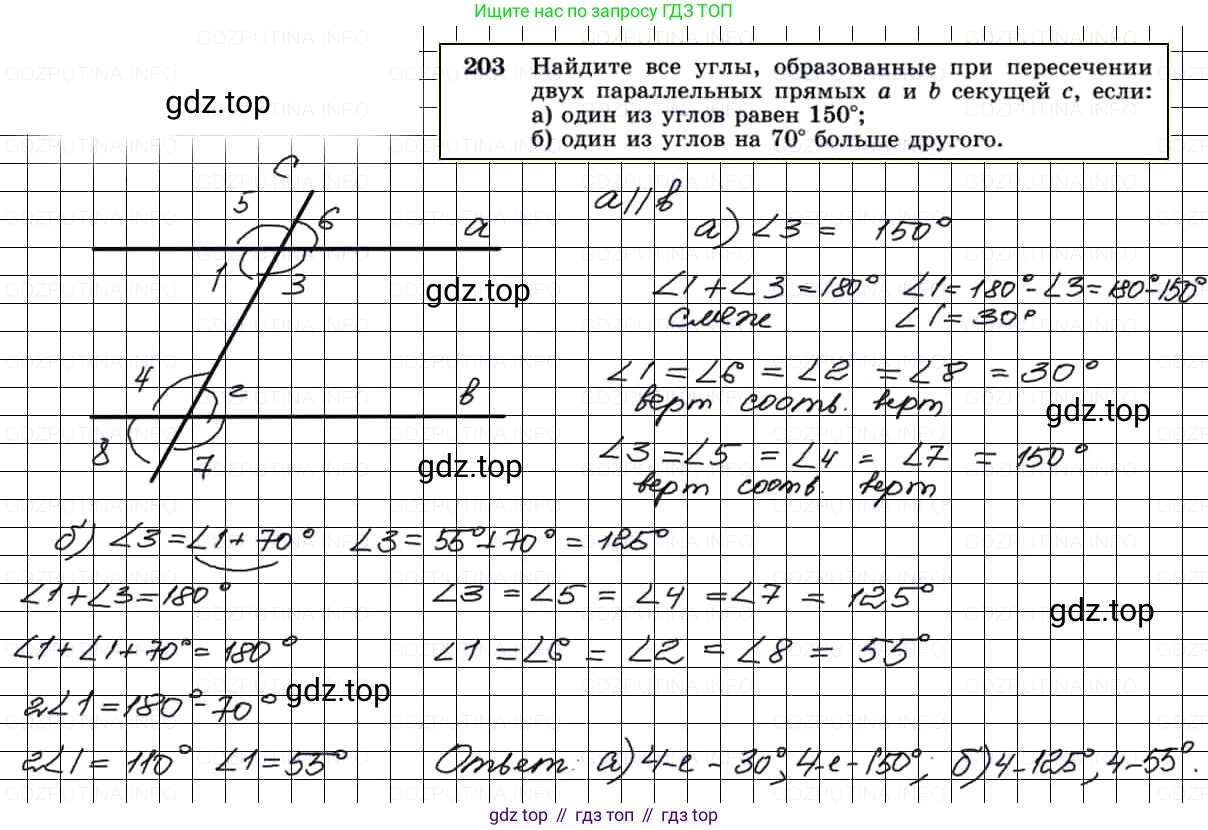 Ищите нас по запросу ГДЗ ТОП
203 Найдите все углы, образованные при пересечении
двух параллельных прямых a и b секущей c, если:
а) один из углов равен 150°;
б) один из углов на 70° больше другого.
gdz.top
c
5
6
a
1
3
gdz.top
4
2
b
8
7
gdz.top
a||b
а) ∠3 = 150°
∠1+∠3=180° ∠1=180°-∠3=180°-150°
смеж ∠1=30°
∠1=∠6=∠2=∠8=30°
верт соотв. верт
gdz.top
∠3=∠5=∠4=∠7=150°
верт соотв. верт
б) ∠3=∠1+70° ∠3=55°+70°=125°
∠1+∠3=180° ∠3=∠5=∠4=∠7=125°
gdz.top
∠1+∠1+70°=180° ∠1=∠6=∠2=∠8=55°
2∠1=180°-70°
gdz.top
2∠1=110° ∠1=55° Ответ: а) 4-е-30°, 4-е-150°; б) 4-125°, 4-55°.
gdz top // гдз топ // gdz top
GDZPUTINA.INFO